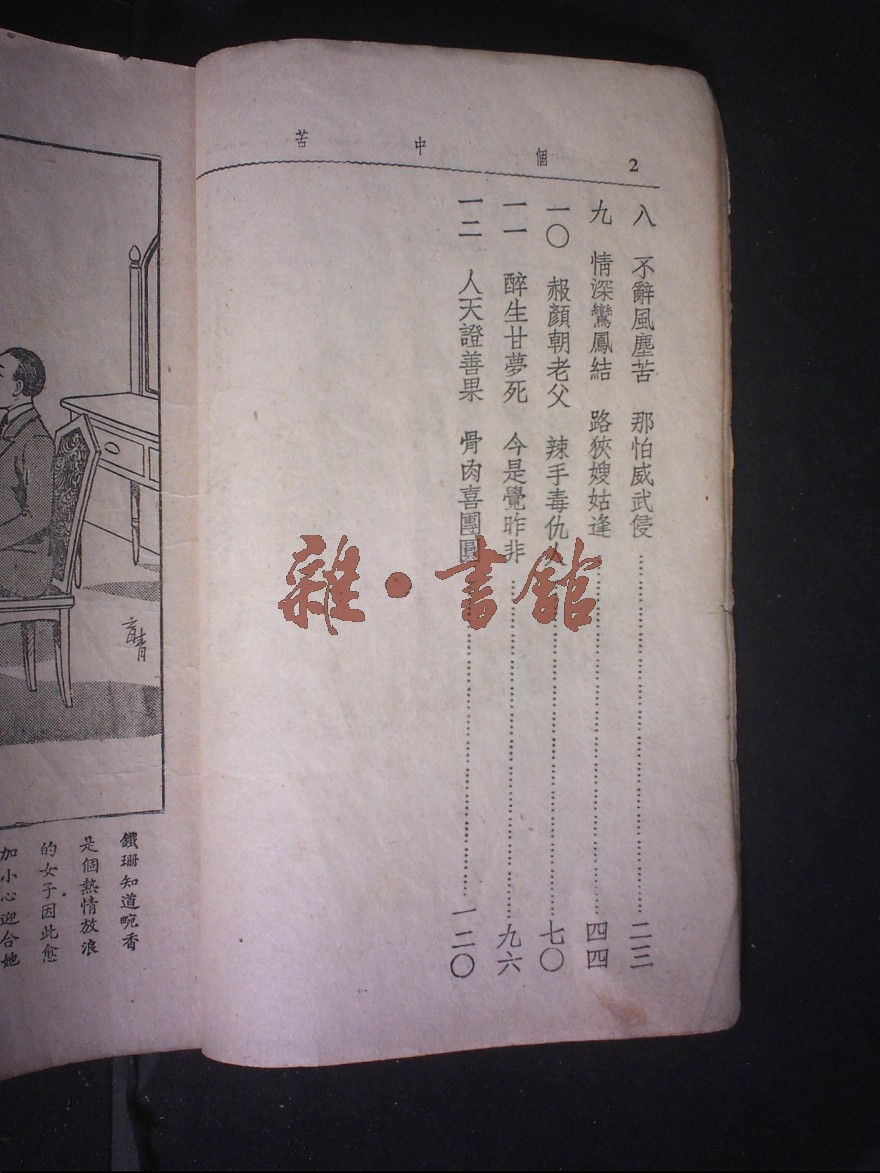 2 個中苦
八 不辭風塵苦 那怕威武侵……二三
九 情深鸞鳳結 路狹嫂姑逢……四四
一〇 赧顏朝老父 辣手毒仇人……七〇
一一 醉生甘夢死 今是覺昨非……九六
一二 人天證善果 骨肉喜團圓……一二〇
雜·書館
鐵珊知道晼香
是個熱情放浪
的女子因此愈
加小心迎合她